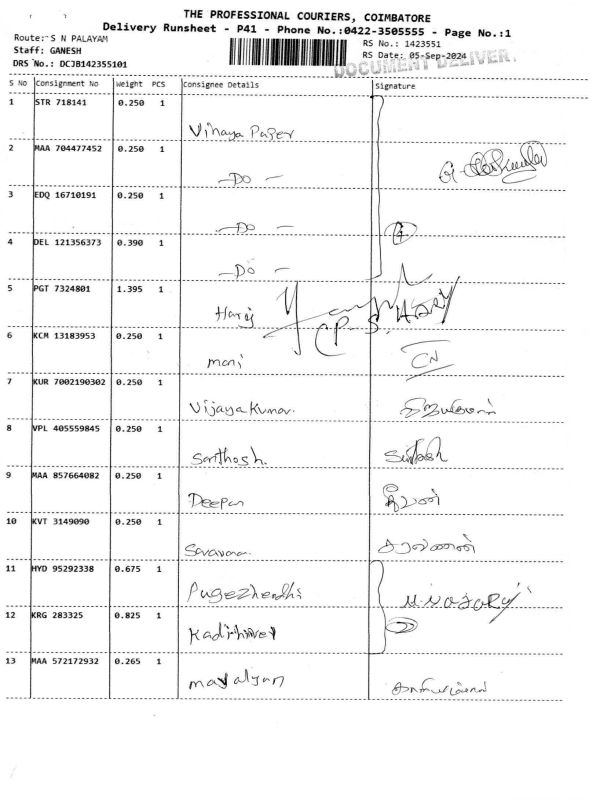 THE PROFESSIONAL COURIERS, COIMBATORE
Delivery Runsheet - P41 - Phone No.:0422-3505555 - Page No.:1
Route: S N PALAYAM
RS No.: 1423551
Staff: GANESH
RS Date: 05-Sep-2024
DRS No.: DCJB142355101
DOCUMENT DELIVER
S No Consignment No Weight PCS Consignee Details Signature
1 STR 718141 0.250 1
Vinaya Paper
2 MAA 704477452 0.250 1
-Do-
3 EDQ 16710191 0.250 1
-Do-
4
4 DEL 121356373 0.390 1
-Do-
5 PGT 7324801 1.395 1
Harij
C.P.S. HARY
6 KCM 13183953 0.250 1
mani CN
7 KUR 7002190302 0.250 1
Vijaya Kumar.
8 VPL 405559845 0.250 1
Santhosh. Santhosh
9 MAA 857664082 0.250 1
Deepan தீபன்
10 KVT 3149090 0.250 1
Saravana. சரவணன்
11 HYD 95292338 0.675 1
Pugezhendhi
12 KRG 283325 0.825 1
2
Kadirhivel
13 MAA 572172932 0.265 1